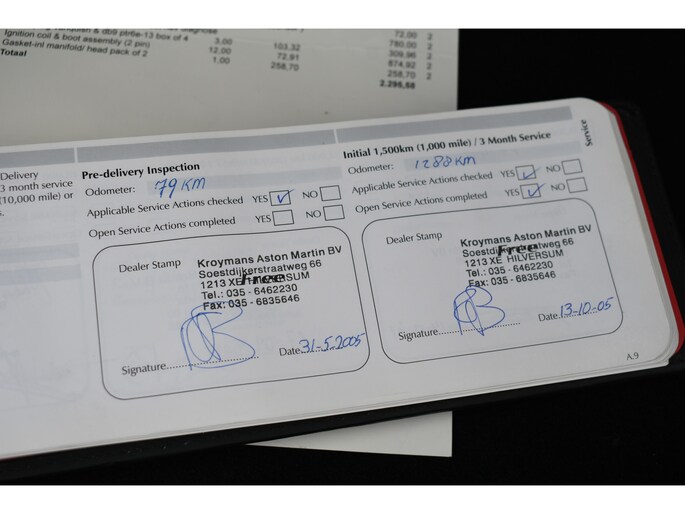 & db9 pb6e-13 box of 4
Ignition coil & boot assembly (2 pin) 3,00 72,00 2
Gasket-inl manifold/ head pack of 2 12,00 103,32 780,00 2
Totaal 1,00 72,91 309,96 2
258,70 874,92 2
258,70 2
2.295,58
Delivery
3 month service
(10,000 mile) or
Pre-delivery Inspection
Odometer: 79 KM
Applicable Service Actions checked YES ✓ NO
Open Service Actions completed YES NO
Dealer Stamp
Kroymans Aston Martin BV
Soestdijkerstraatweg 66
1213 XE HILVERSUM
Free
Tel.: 035 - 6462230
Fax: 035 - 6835646
Signature Date 31-5-2005
Initial 1,500km (1,000 mile) / 3 Month Service
Odometer: 1288 KM
Applicable Service Actions checked YES ✓ NO
Open Service Actions completed YES ✓ NO
Dealer Stamp
Kroymans Aston Martin BV
Soestdijkerstraatweg 66
Free
1213 XE HILVERSUM
Tel.: 035 - 6462230
Fax: 035 - 6835646
Signature Date 13-10-05
Service
A.9